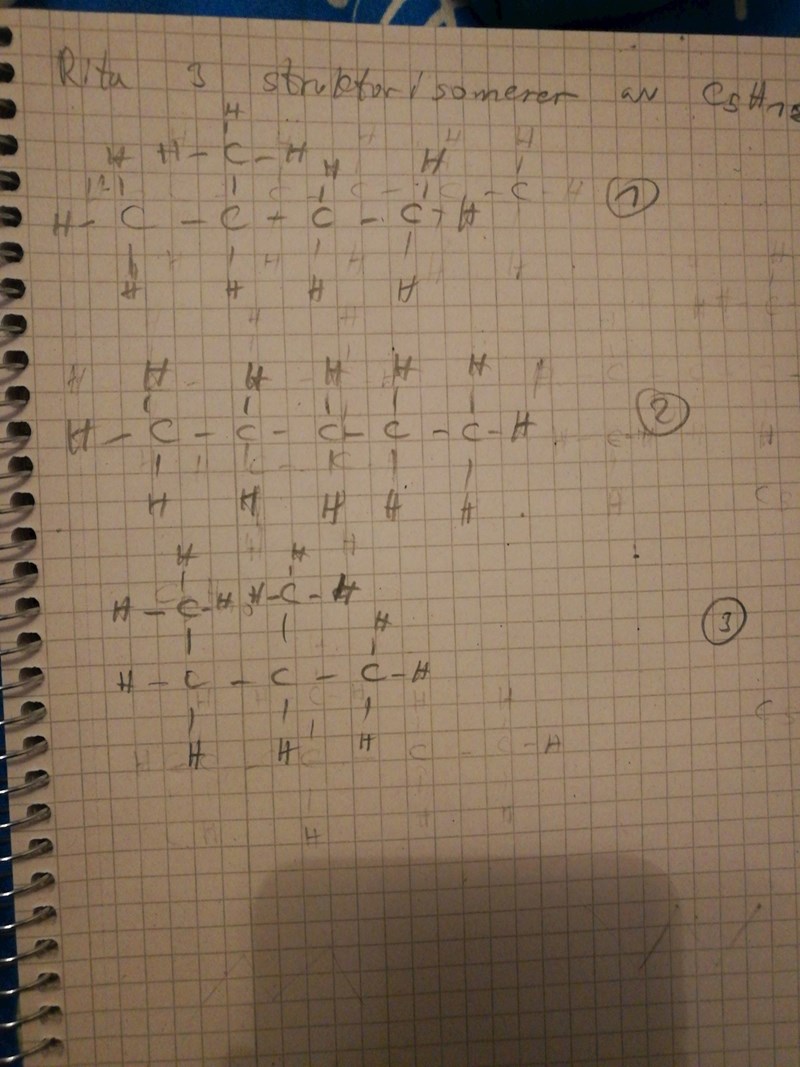 Rita 3 strukturisomerer av C5H12
H
H H - C - H H H H
H - C - C - C - C - H 1
H H H H
H H H H H
H - C - C - C - C - C - H 2
H H H H H
H H
H - C - H H - C - H
H
H - C - C - C - H 3
H H H